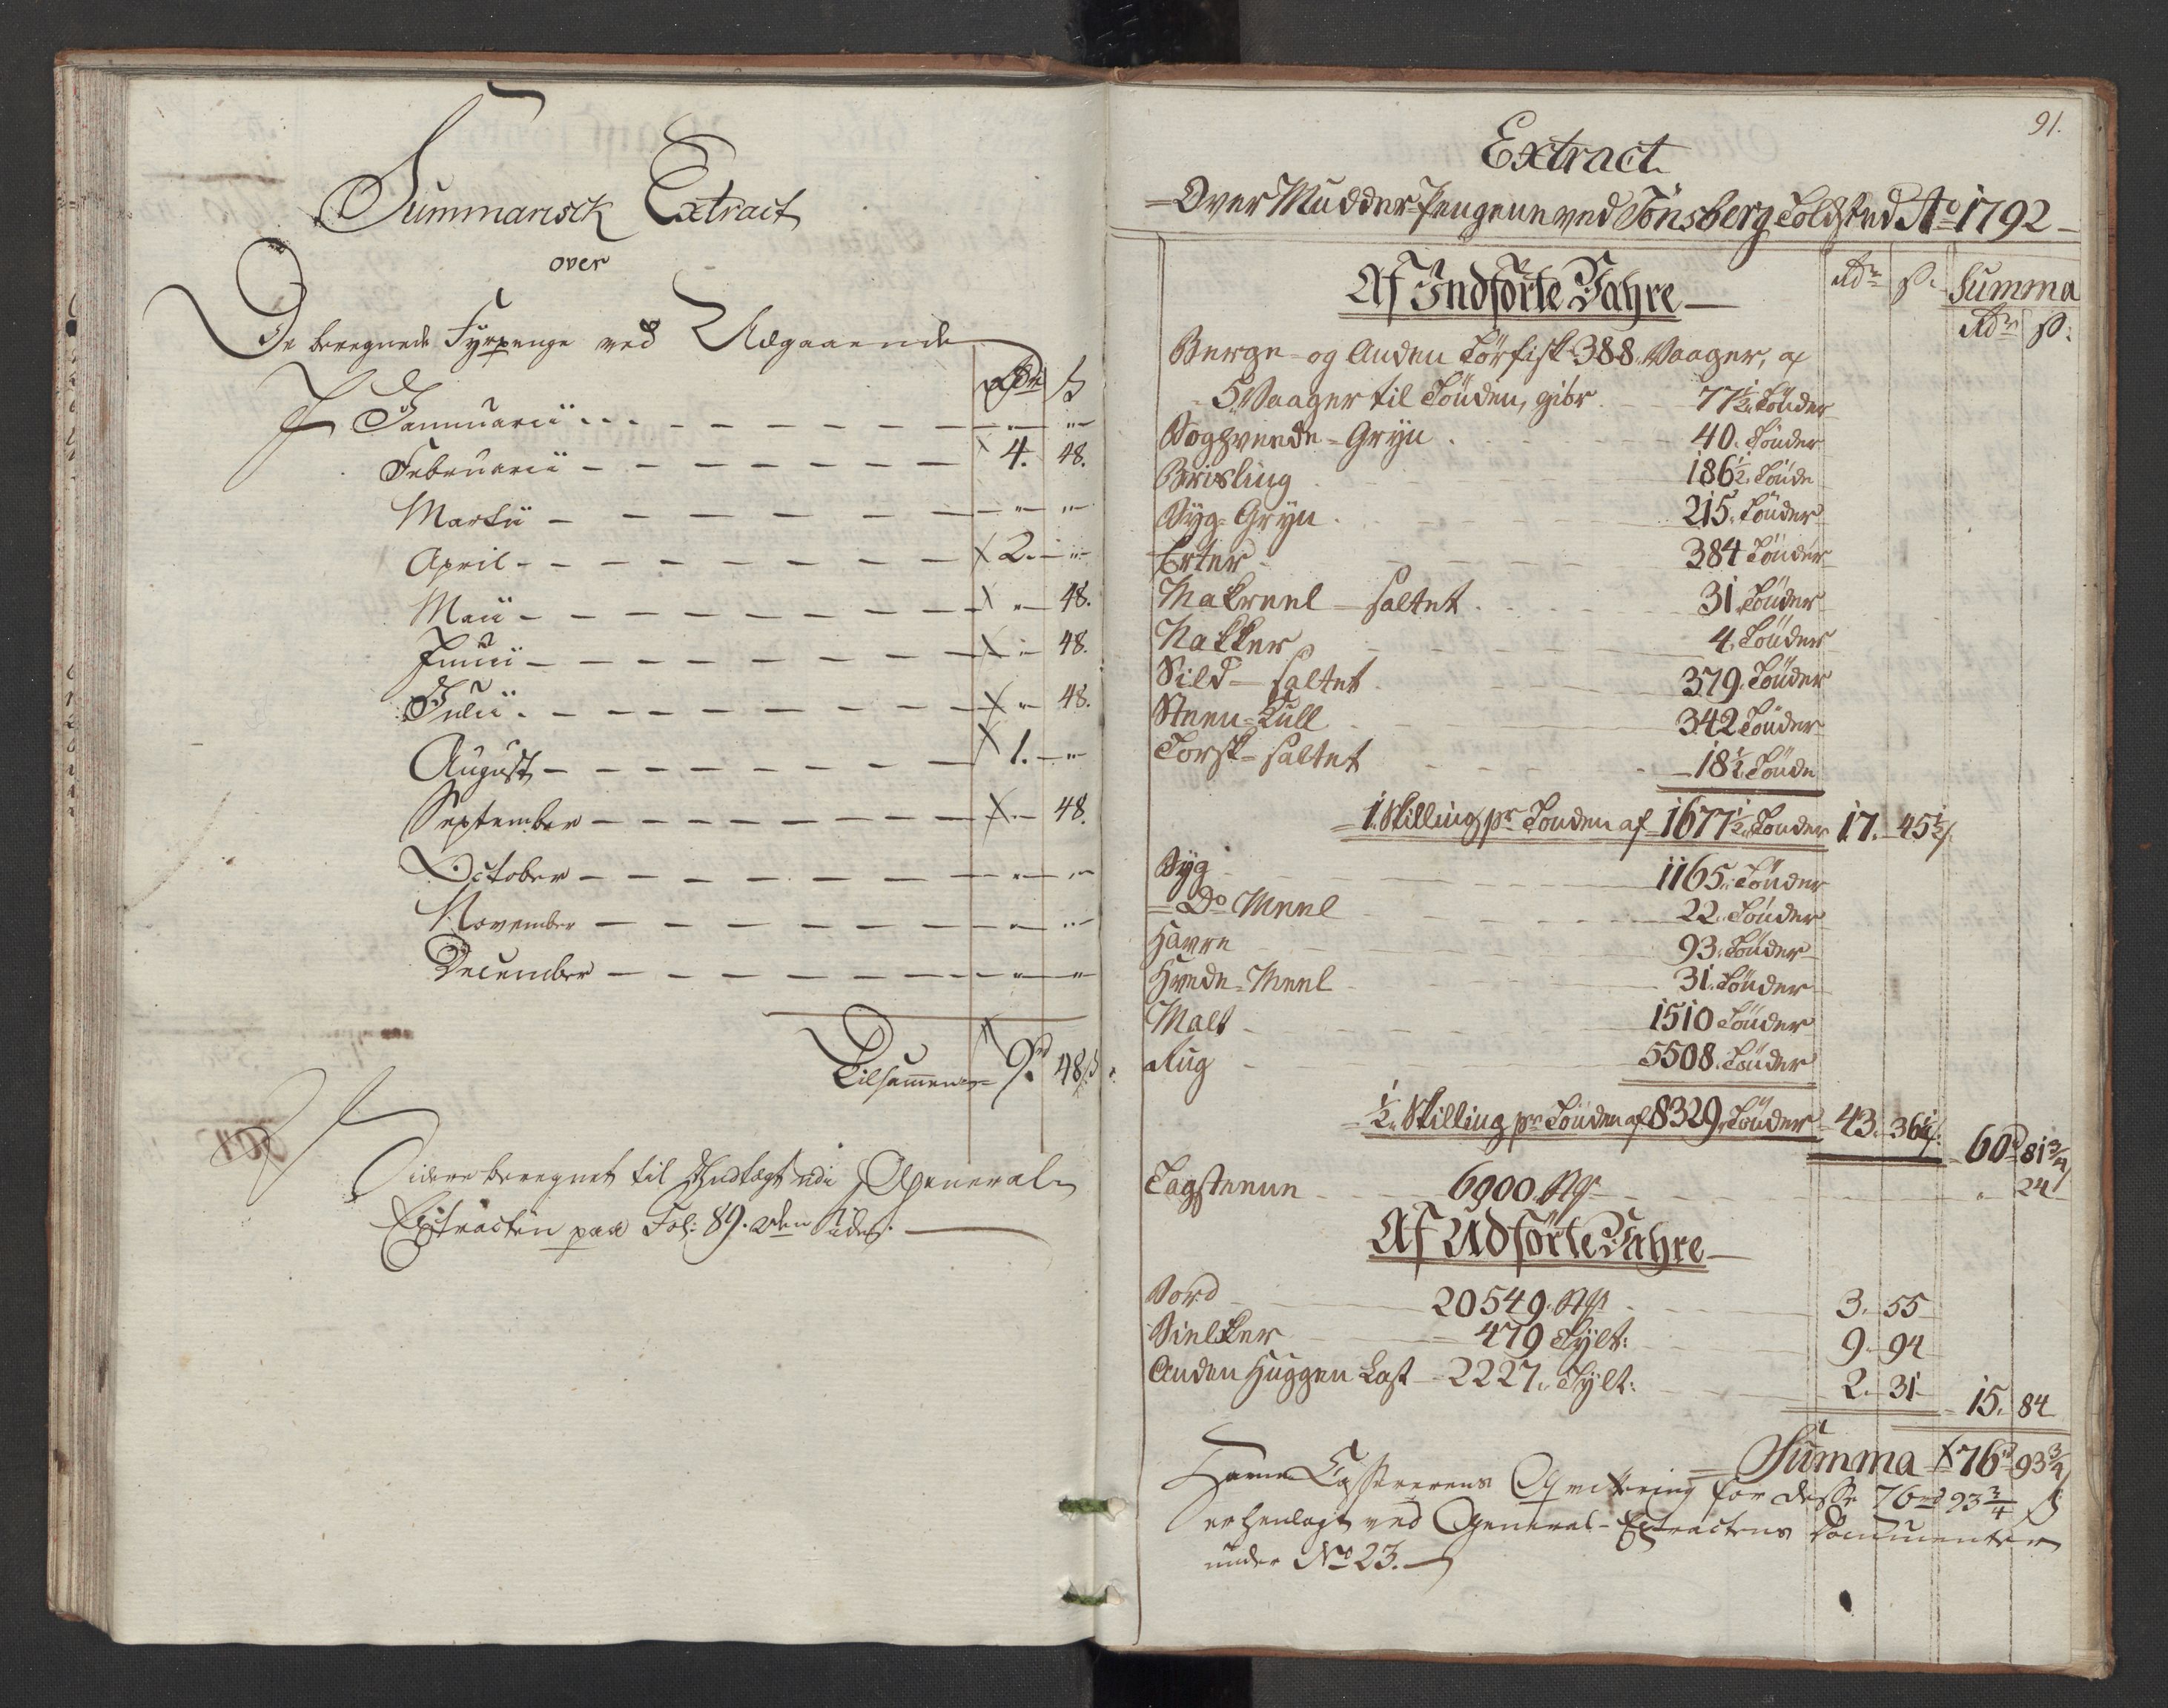 Summarisck Extract
over
De beregnede Fyrpenge ved Udgaaende
Rdr ß
Januarii - " - "
Februarii - 4. 48.
Martii - " - "
April - 2. - "
Maii - " - 48.
Junii - " - 48.
Julii - " - 48.
August - 1. - "
September - " - 48.
October - " - "
November - " - "
December - " - "
Tilsammen 9rd 48ß
Videre beregnet til Indtægt udi General
Extracten paa Fol: 89. 2den Side.
91.
Extract
Over Mudder-Pengene ved Tönsberg Toldsted Ao 1792
Af Indförte Vahre Rdr ß. Summa
Rdr ß:
Berge- og Anden Törfisk 388. Vaager, a
5 Vaager til Tönden, giör 77 1/2 Tönder
Boghvede-Gryn 40. Tönder
Brisling 186 1/2 Tönde
Byg-Gryn 215. Tönder
Erter 384 Tönder
Makreel - saltet 31. Tönder
Nakker 4. Tönder
Sild - saltet 379. Tönder
Steen-Kull 342 Tönder
Torsk - saltet 18 1/2 Tönde
1. Skilling pr Tönden af 1677 1/2 Tönder 17. 45 1/2
Byg 1165. Tönder
Do Meel 22. Tönder
Havre 93. Tönder
Hvede-Meel 31. Tönder
Malt 1510 Tönder
Rug 5508. Tönder
1/2 Skilling pr Tönden af 8329. Tönder 43. 36 1/4 60rd 81 3/4
Tagsteene 6900. " 24
Af Udförte Vahre
Bord 20549. 3. 55
Bielcker 479 Tylt: 9. 94
Anden Huggen Last 2227. Tylt: 2. 31 15. 84
Summa 76rd 93 3/4
Havne Casserens Qvittering for desse 76rd 93 3/4 ß
er henlagt ved General-Extractens Documenter
under No 23.